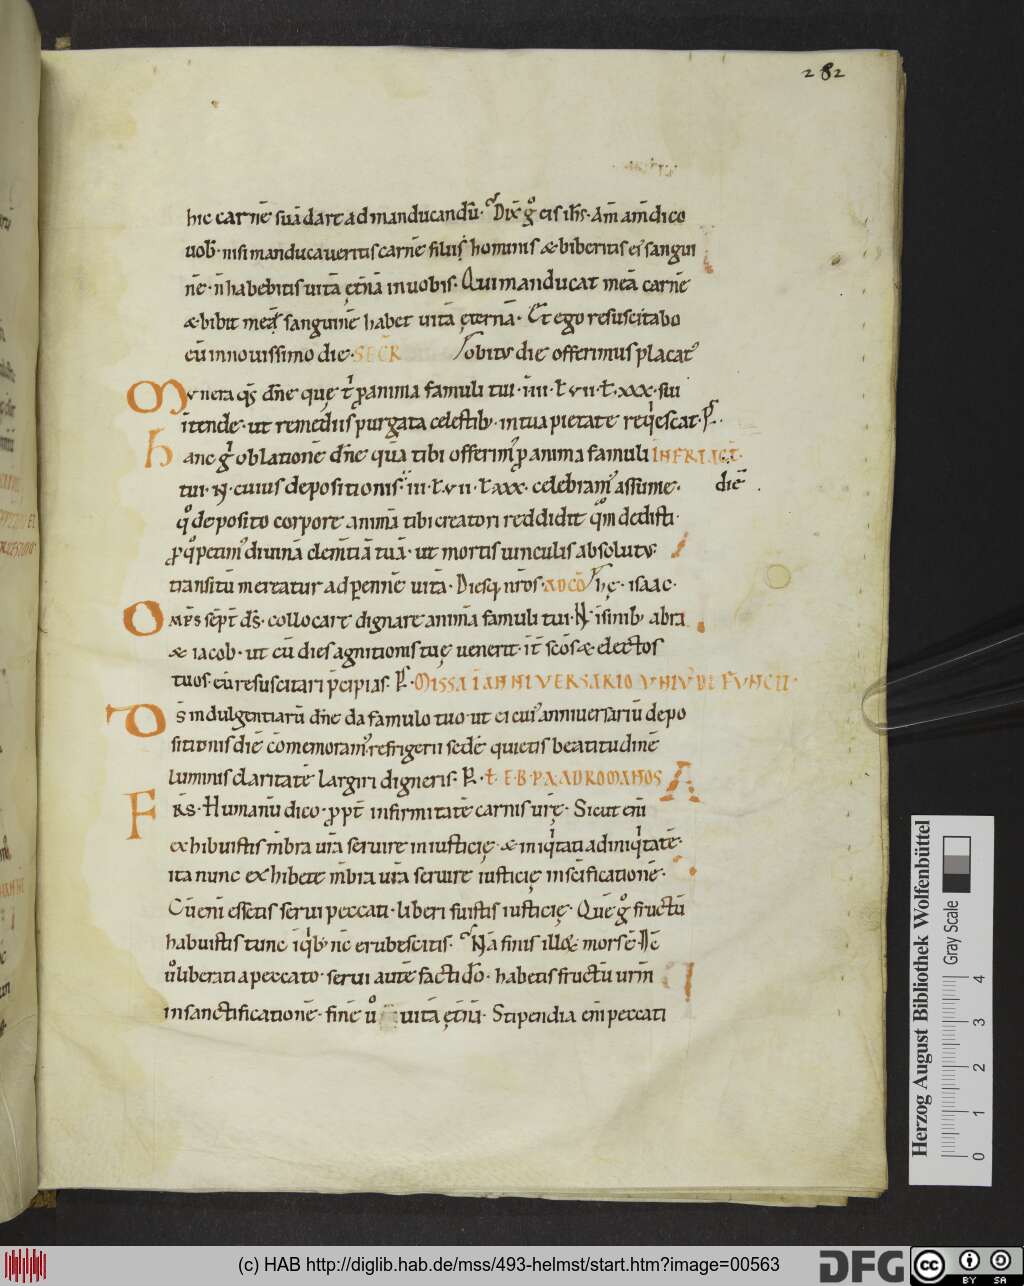 282
hic carnē suā dare ad manducandū. Dix̄ gͦ eis ih̄s. Am̄ am̄ dico
uob̄. nisi manducaueritis carnē filii hominis & biberitis ei᾽ sangui
nē. n̄ habebitis uitā ęt̄nā in uobis. Qui manducat meā carnē
& bibit meū sanguinē habet uitā ęternā. Et ego resuscitabo
eū in nouissimo die. SECR̄ obitus die offerimus placat᾽
Munera qs̄ dn̄e que t̄ p anima famuli tui. iii. t. vii. t. xxx. sui
ītende. ut remediis purgata celestib; in tua pietate req̇escat. P.
hanc gͥ oblationē dn̄e quā tibi offerim᾽ p anima famuli INFRA ACT̄.
tui. N̄. cuius depositionis. iii. t. vii. t. xxx. celebram᾽ assume. diē
qͦ deposito corpore animā tibi creatori reddidit quā dedisti.
p qͦ petim᾽ diuinā clem̄tiā tuā. ut mortis uinculis absolutus
transitū mereatur ad pennē uitā. Diesq; nr̄os. AD CŌ hę. isaac.
OMP̄S sēpt̄ ds̄. collocare dignare animā famuli tui. N̄. i sinib; abra
& iacob. ut cū dies agnitionis tuę uenerit. īt̄ scōs & electos
tuos. eū resuscitari p̄cipias. P. MISSA I ANNIVERSARIO VNIV̄ DEFVNCTI.
Ds̄ indulgentiarū dn̄e da famulo tuo ut ei cui᾽ anniuersariū depo
sitionis diē cōmemoram᾽ refrigerii sedē quietis beatitudinē
luminis claritatē largiri digneris. P. t. E. B. PA. AD ROMANOS
FR̄S. Humanū dico. ppt̄ infirmitatē carnis ur̄ę. Sicut eni
exhibuistis m̄bra ur̄a seruire in iusticię & iniq̇tati ad iniq̇tatē.
ita nunc exhibete m̄bra ur̄a seruire iusticię in sc̄ificationē.
Cū eni essetis serui peccati. liberi fuistis iusticię. Quē gͦ fructū
habuistis tunc i q̇b; nc̄ erubescitis. Nā finis illoꝝ mors ē. Nc̄
uͦ liberati a peccato. serui autē facti dō. habetis fructū ur̄m
in sanctificationē. finē uͦ uitā ęt̄nā. Stipendia eni peccati
Herzog August Bibliothek Wolfenbüttel
Gray Scale
0 1 2 3 4
(c) HAB http://diglib.hab.de/mss/493-helmst/start.htm?image=00563
DFG
cc BY SA